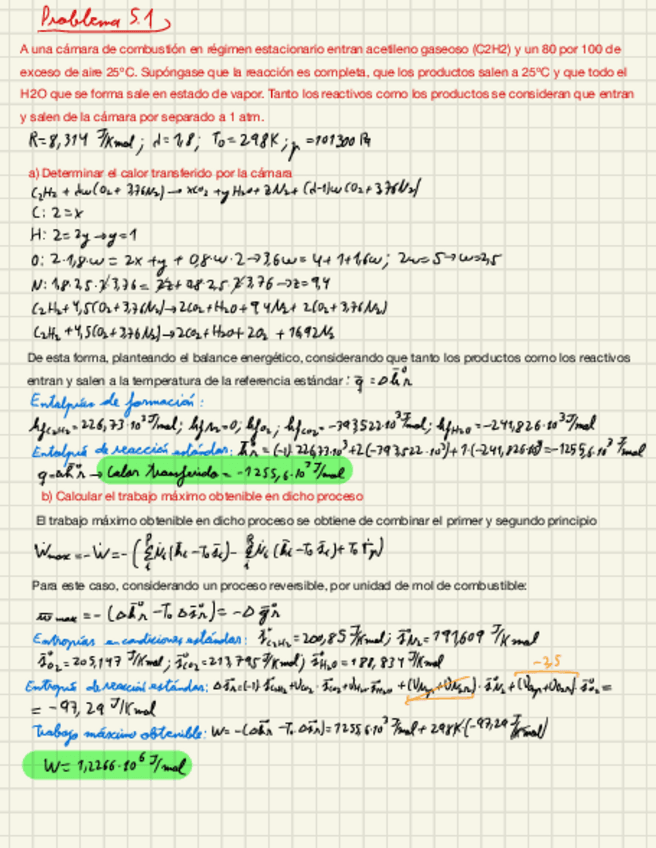 Problema 5.1
A una cámara de combustión en régimen estacionario entran acetileno gaseoso (C2H2) y un 80 por 100 de
exceso de aire 25°C. Supóngase que la reacción es completa, que los productos salen a 25°C y que todo el
H2O que se forma sale en estado de vapor. Tanto los reactivos como los productos se consideran que entran
y salen de la cámara por separado a 1 atm.
R=8,314 J/Kmol; λ=1,8; T₀=298K; p=101300 Pa
a) Determinar el calor transferido por la cámara
C₂H₂ + λw(O₂+3,76N₂)→xCO₂+yH₂O+zN₂+(λ-1)w(O₂+3,76N₂)
C: 2=x
H: 2=2y→y=1
O: 2·1,8·w = 2x+y+0,8·w·2→3,6w=4+1+1,6w; 2w=5→w=2,5
N: 1,8·2,5·2·3,76 = 2z+0,8·2,5·2·3,76→z=9,4
C₂H₂+4,5(O₂+3,76N₂)→2CO₂+H₂O+9,4N₂+2(O₂+3,76N₂)
C₂H₂+4,5(O₂+3,76N₂)→2CO₂+H₂O+2O₂+16,92N₂
De esta forma, planteando el balance energético, considerando que tanto los productos como los reactivos
entran y salen a la temperatura de la referencia estándar: q̄=Δh̄°r
Entalpías de formación:
hfC₂H₂=226,73·10³J/mol; hfN₂=0; hfO₂; hfCO₂=-393,522·10³J/mol; hfH₂O=-241,826·10³J/mol
Entalpía de reacción estándar: h̄°r=(-1)·226,73·10³+2(-393,522·10³)+1·(-241,826·10³)=-1255,6·10³J/mol
q=Δh̄°r→Calor transferido=-1255,6·10³J/mol
b) Calcular el trabajo máximo obtenible en dicho proceso
El trabajo máximo obtenible en dicho proceso se obtiene de combinar el primer y segundo principio
Para este caso, considerando un proceso reversible, por unidad de mol de combustible:
w max=-(Δh̄°r-T₀Δs̄°r)=-Δḡ°r
Entropías en condiciones estándar: s̄°C₂H₂=200,85J/Kmol; s̄°N₂=191,609J/Kmol
s̄°O₂=205,147J/Kmol; s̄°CO₂=213,795J/Kmol; s̄°H₂O=188,834J/Kmol
-2,5
Entropía de reacción estándar:
=-97,29J/Kmol
Trabajo máximo obtenible: W=-(Δh̄°r-T₀Δs̄°r)=1255,6·10³J/mol+298K·(-97,29J/Kmol)
W=1,2266·10⁶J/mol